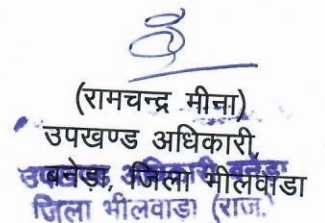 (रामचन्द्र मीना)
उपखण्ड अधिकारी,
बनेड़ा, जिला भीलवाडा
उपखण्ड अधिकारी बनेड़ा
जिला भीलवाड़ा (राज.)